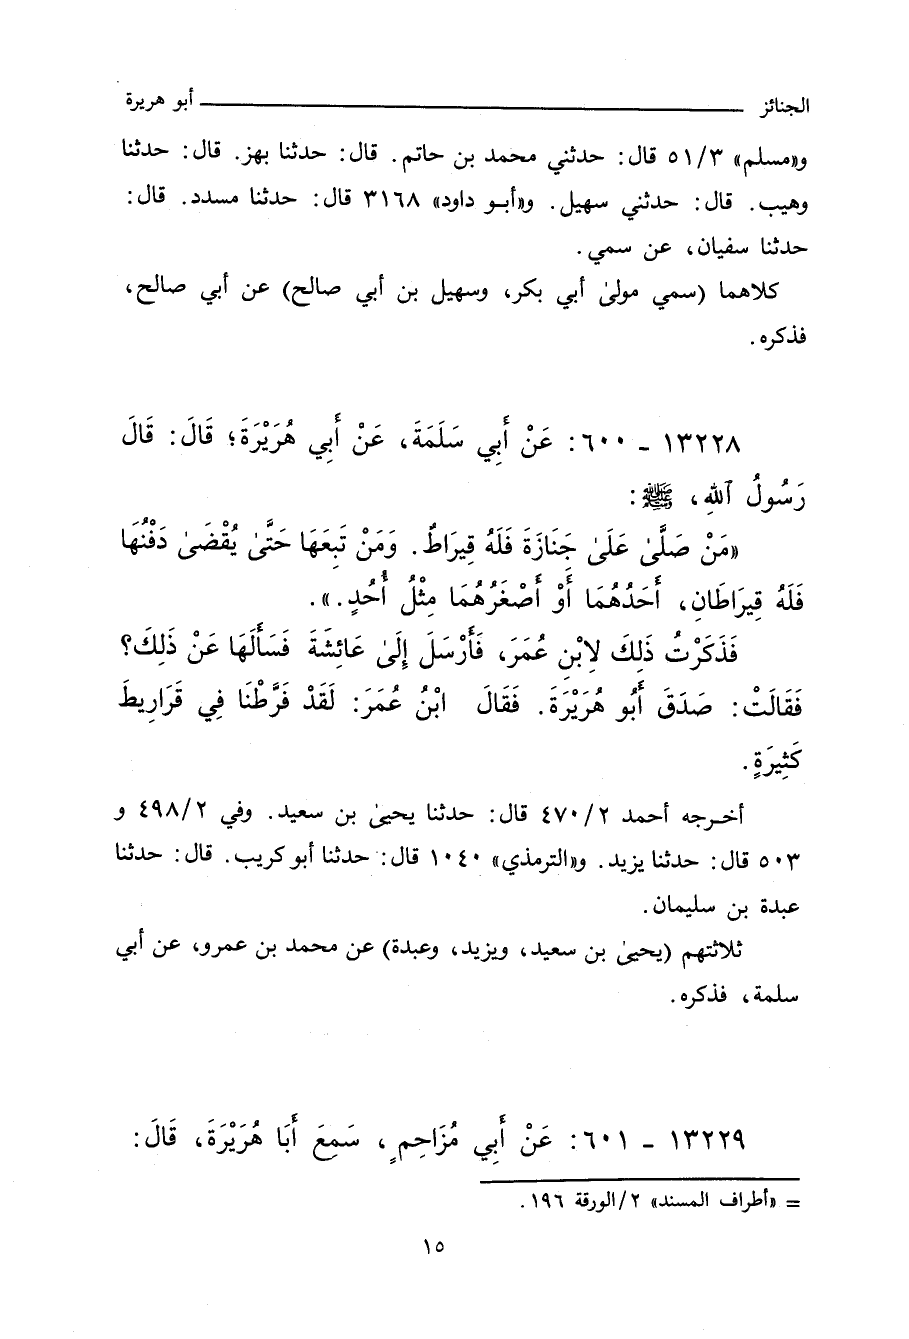 الجنائز ــــــــــــــــ أبو هريرة
و«مسلم» ٥١/٣ قال: حدثني محمد بن حاتم. قال: حدثنا بهز. قال: حدثنا
وهيب. قال: حدثني سهيل. و«أبو داود» ٣١٦٨ قال: حدثنا مسدد. قال:
حدثنا سفيان، عن سمي.
كلاهما (سمي مولىٰ أبي بكر، وسهيل بن أبي صالح) عن أبي صالح،
فذكره.
١٣٢٢٨ - ٦٠٠: عَنْ أَبِي سَلَمَةَ، عَنْ أَبِي هُرَيْرَةَ؛ قَالَ: قَالَ
رَسُولُ ٱللهِ، ﷺ:
«مَنْ صَلَّىٰ عَلَىٰ جَنَازَةَ فَلَهُ قِيرَاطٌ. وَمَنْ تَبِعَهَا حَتَّىٰ يُقْضَىٰ دَفْنُهَا
فَلَهُ قِيرَاطَانِ، أَحَدُهُمَا أَوْ أَصْغَرُهُمَا مِثْلُ أُحُدٍ.».
فَذَكَرْتُ ذَلِكَ لِابْنِ عُمَرَ، فَأَرْسَلَ إِلَىٰ عَائِشَةَ فَسَأَلَهَا عَنْ ذَلِكَ؟
فَقَالَتْ: صَدَقَ أَبُو هُرَيْرَةَ. فَقَالَ ابْنُ عُمَرَ: لَقَدْ فَرَّطْنَا فِي قَرَارِيطَ
كَثِيرَةٍ.
أخرجه أحمد ٤٧٠/٢ قال: حدثنا يحيىٰ بن سعيد. وفي ٤٩٨/٢ و
٥٠٣ قال: حدثنا يزيد. و«الترمذي» ١٠٤٠ قال: حدثنا أبو كريب. قال: حدثنا
عبدة بن سليمان.
ثلاثتهم (يحيىٰ بن سعيد، ويزيد، وعبدة) عن محمد بن عمرو، عن أبي
سلمة، فذكره.
١٣٢٢٩ - ٦٠١: عَنْ أَبِي مُزَاحِمٍ، سَمِعَ أَبَا هُرَيْرَةَ، قَالَ:
= «أطراف المسند» ٢/الورقة ١٩٦.
١٥